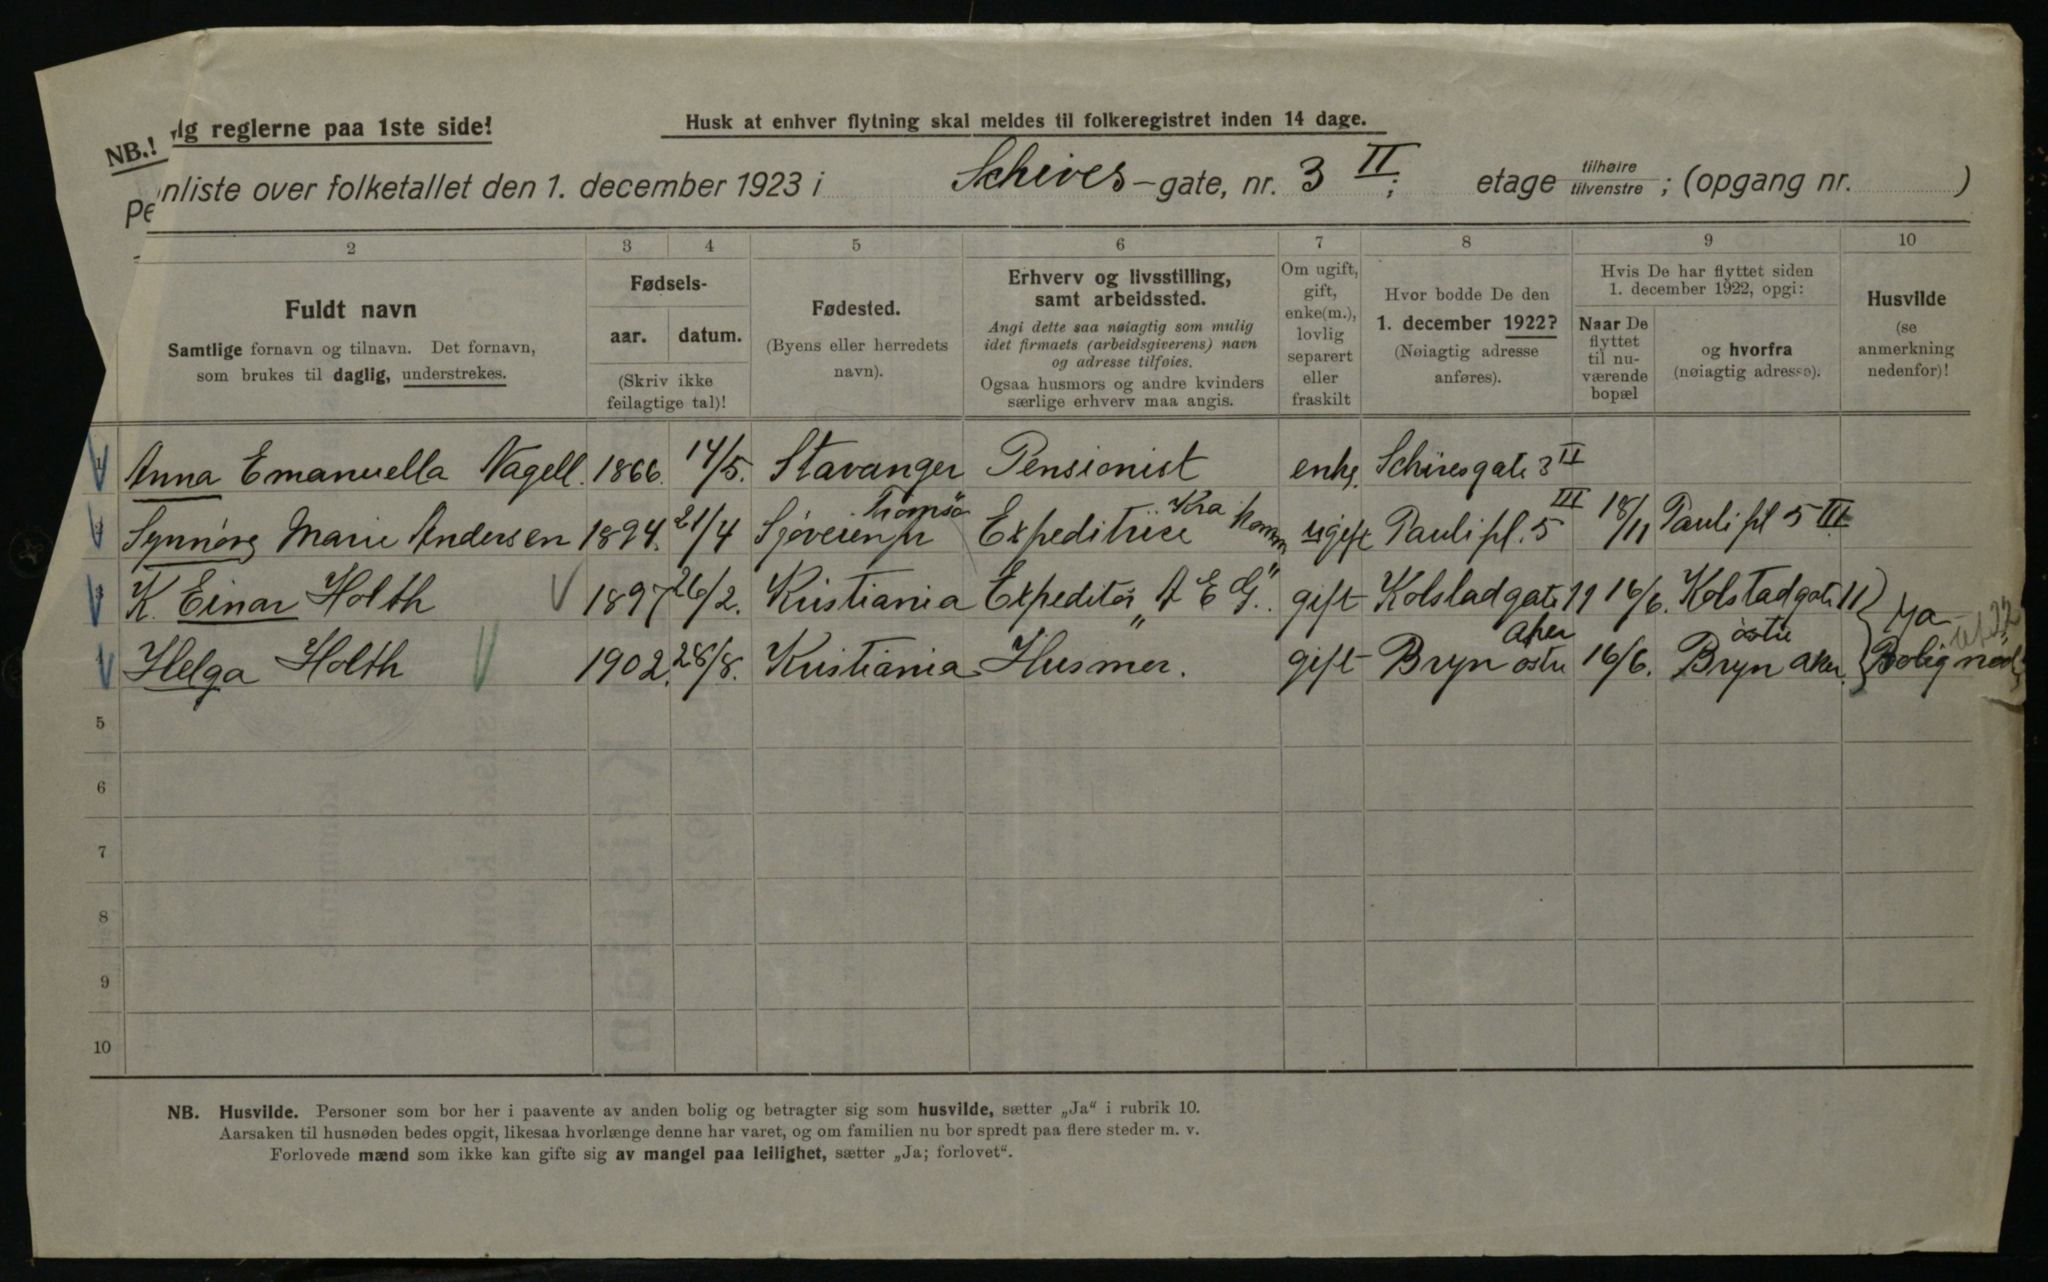 NB.! ig reglerne paa 1ste side!
Husk at enhver flytning skal meldes til folkeregistret inden 14 dage.
Pe nliste over folketallet den 1. december 1923 i Schives-gate, nr. 3 II; etage tilhøire tilvenstre; (opgang nr. )
2 3 4 5 6 7 8 9 10
Fuldt navn
Samtlige fornavn og tilnavn. Det fornavn,
som brukes til daglig, understrekes.
Fødsels-
aar. datum.
(Skriv ikke
feilagtige tal)!
Fødested.
(Byens eller herredets
navn).
Erhverv og livsstilling,
samt arbeidssted.
Angi dette saa nøiagtig som mulig
idet firmaets (arbeidsgiverens) navn
og adresse tilføies.
Ogsaa husmors og andre kvinders
særlige erhverv maa angis.
Om ugift,
gift,
enke(m.),
lovlig
separert
eller
fraskilt
Hvor bodde De den
1. december 1922?
(Nøiagtig adresse
anføres).
Hvis De har flyttet siden
1. december 1922, opgi:
Naar De
flyttet
til nu-
værende
bopæl
og hvorfra
(nøiagtig adresse).
Husvilde
(se
anmerkning
nedenfor)!
1 Anna Emanuella Nagell. 1866. 14/5. Stavanger Pensionist enke. Schivesgate 3 II
2 Synnöve Marie Andersen 1894. 21/4 Tromsö Expeditrise Kra Komm ugift Pauli pl. 5 III 18/11 Pauli pl 5 III
3 K. Einar Holth 1897 26/2. Kristiania Expeditör "A E G". gift Kolstadgate 11 16/6. Kolstadgate 11 } Ja
4 Helga Holth 1902. 28/8. Kristiania Husmor. gift Bryn Aker östre 16/6. Bryn östre Aker. } Bolignöd
5
6
7
8
9
10
NB. Husvilde. Personer som bor her i paavente av anden bolig og betragter sig som husvilde, sætter „Ja“ i rubrik 10.
Aarsaken til husnøden bedes opgit, likesaa hvorlænge denne har varet, og om familien nu bor spredt paa flere steder m. v.
Forlovede mænd som ikke kan gifte sig av mangel paa leilighet, sætter „Ja; forlovet“.